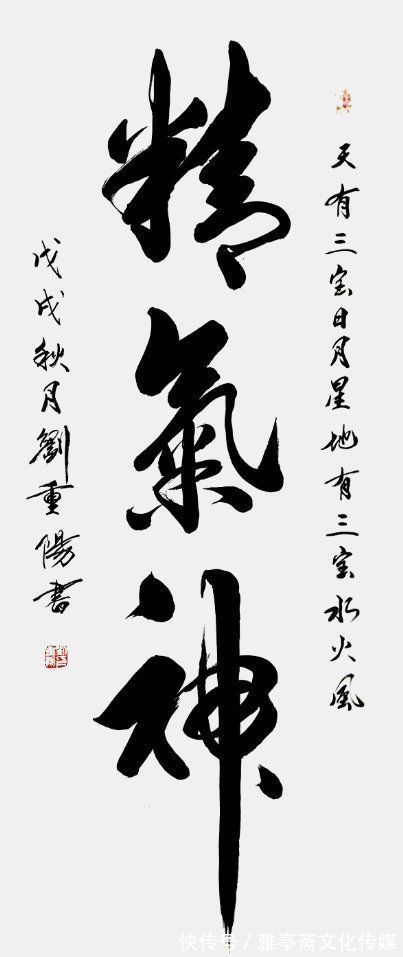 天有三宝日月星地有三宝水火风
精氣神
戊戌秋月劉重陽書
快传号/雅亭斋文化传媒